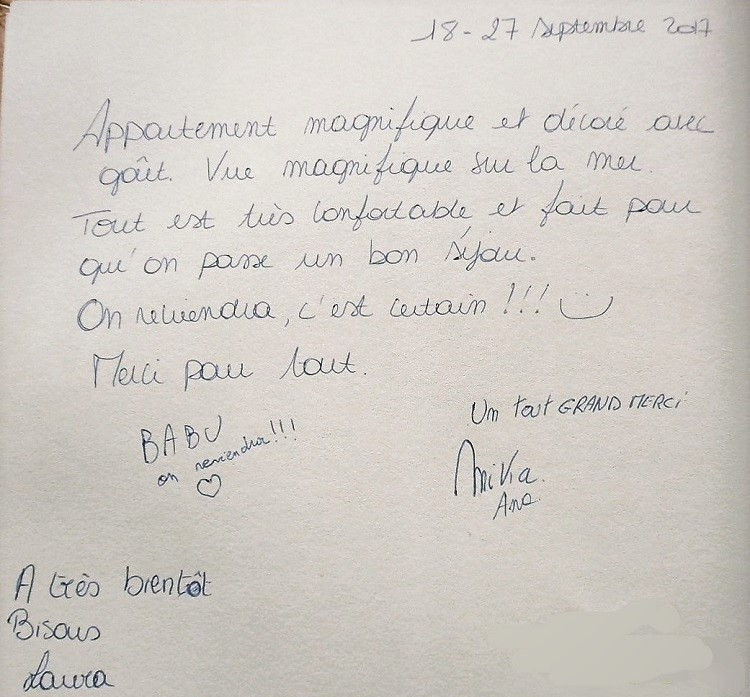 18-27 septembre 2017
Appartement magnifique et décoré avec
goût. Vue magnifique sur la mer.
Tout est très confortable et fait pour
qu'on passe un bon séjour.
On reviendra, c'est certain !!!
Merci pour tout.
Un tout GRAND MERCi
BABU
on reviendra!!!
Ana.
A très bientôt
Bisous
Laura